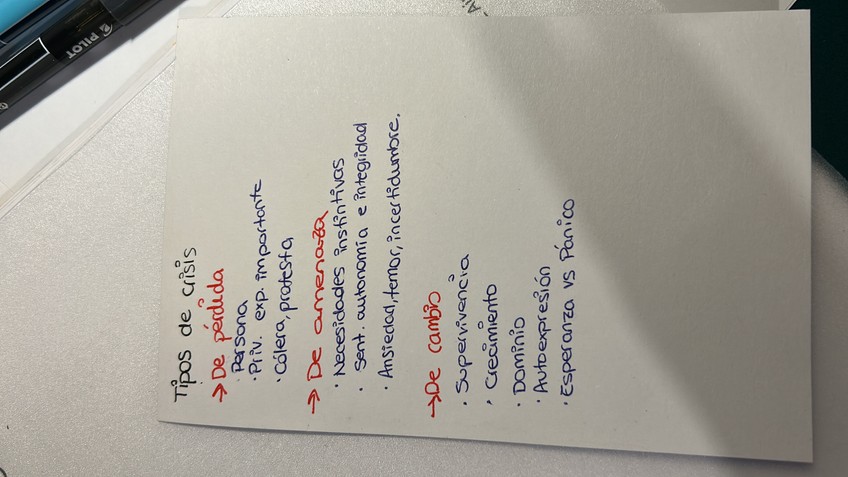 Tipos de crisis
→ De pérdida
· Persona
· Priv. exp. importante
· Cólera, protesta
→ De amenaza
· Necesidades instintivas
· Sent. autonomía e integridad
· Ansiedad, temor, incertidumbre.
→ De cambio
· Supervivencia
· Crecimiento
· Dominio
· Autoexpresión
· Esperanza vs Pánico
PILOT